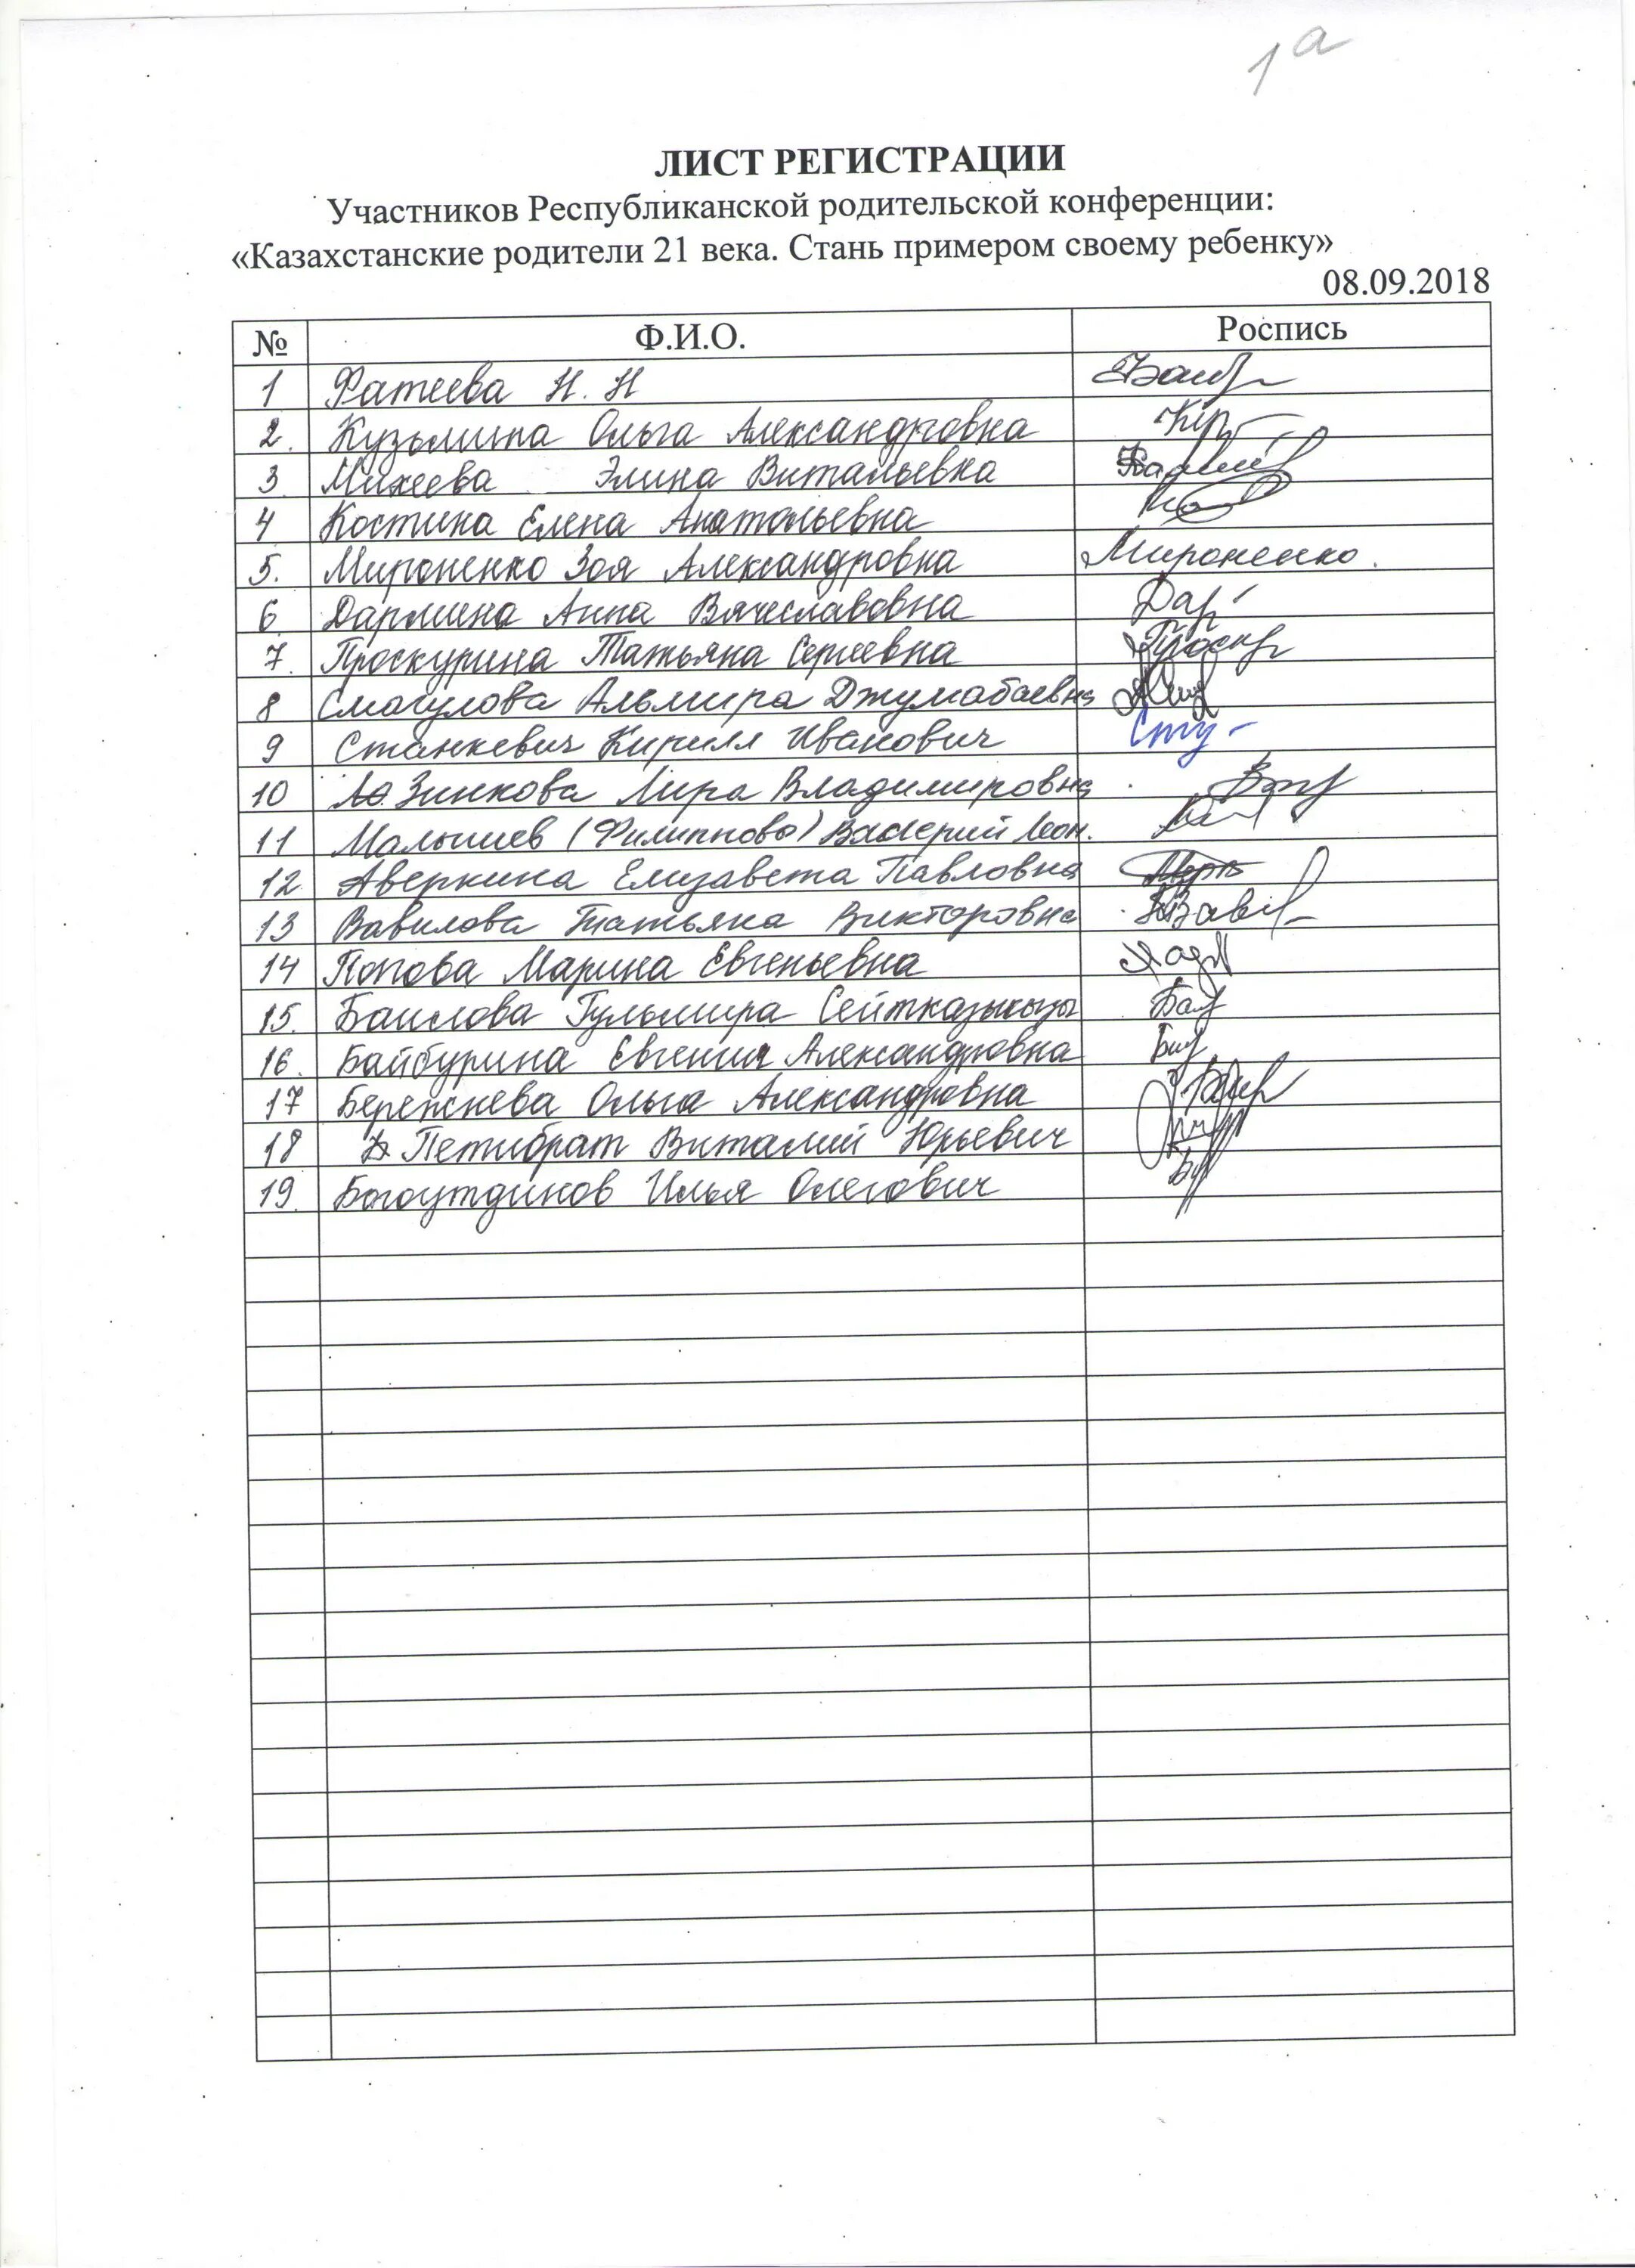 1а
ЛИСТ РЕГИСТРАЦИИ
Участников Республиканской родительской конференции:
«Казахстанские родители 21 века. Стань примером своему ребенку»
08.09.2018
№ Ф.И.О. Роспись
1 Фатеева Н. Н
2. Кузьмина Ольга Александровна
3 Михеева Элина Витальевна
4 Костина Елена Анатольевна
5. Мироненко Зоя Александровна Мироненко.
6 Дармина Анна Вячеславовна Дар
7. Проскурина Татьяна Сергеевна Проскур
8 Смагулова Альмира Джумабаевна
9 Станкевич Кирилл Иванович
10 Зинкова Лира Владимировна
11 Малышев (Филиппова) Валерий Леон.
12. Аверкина Елизавета Павловна
13 Вавилова Татьяна Викторовна
14 Попова Марина Евгеньевна
15. Гульмира
16. Байбурина Евгения Александровна
17 Бережнева Ольга Александровна
18 Петибрат Виталий Юрьевич
19. Богоутдинов Илья Олегович